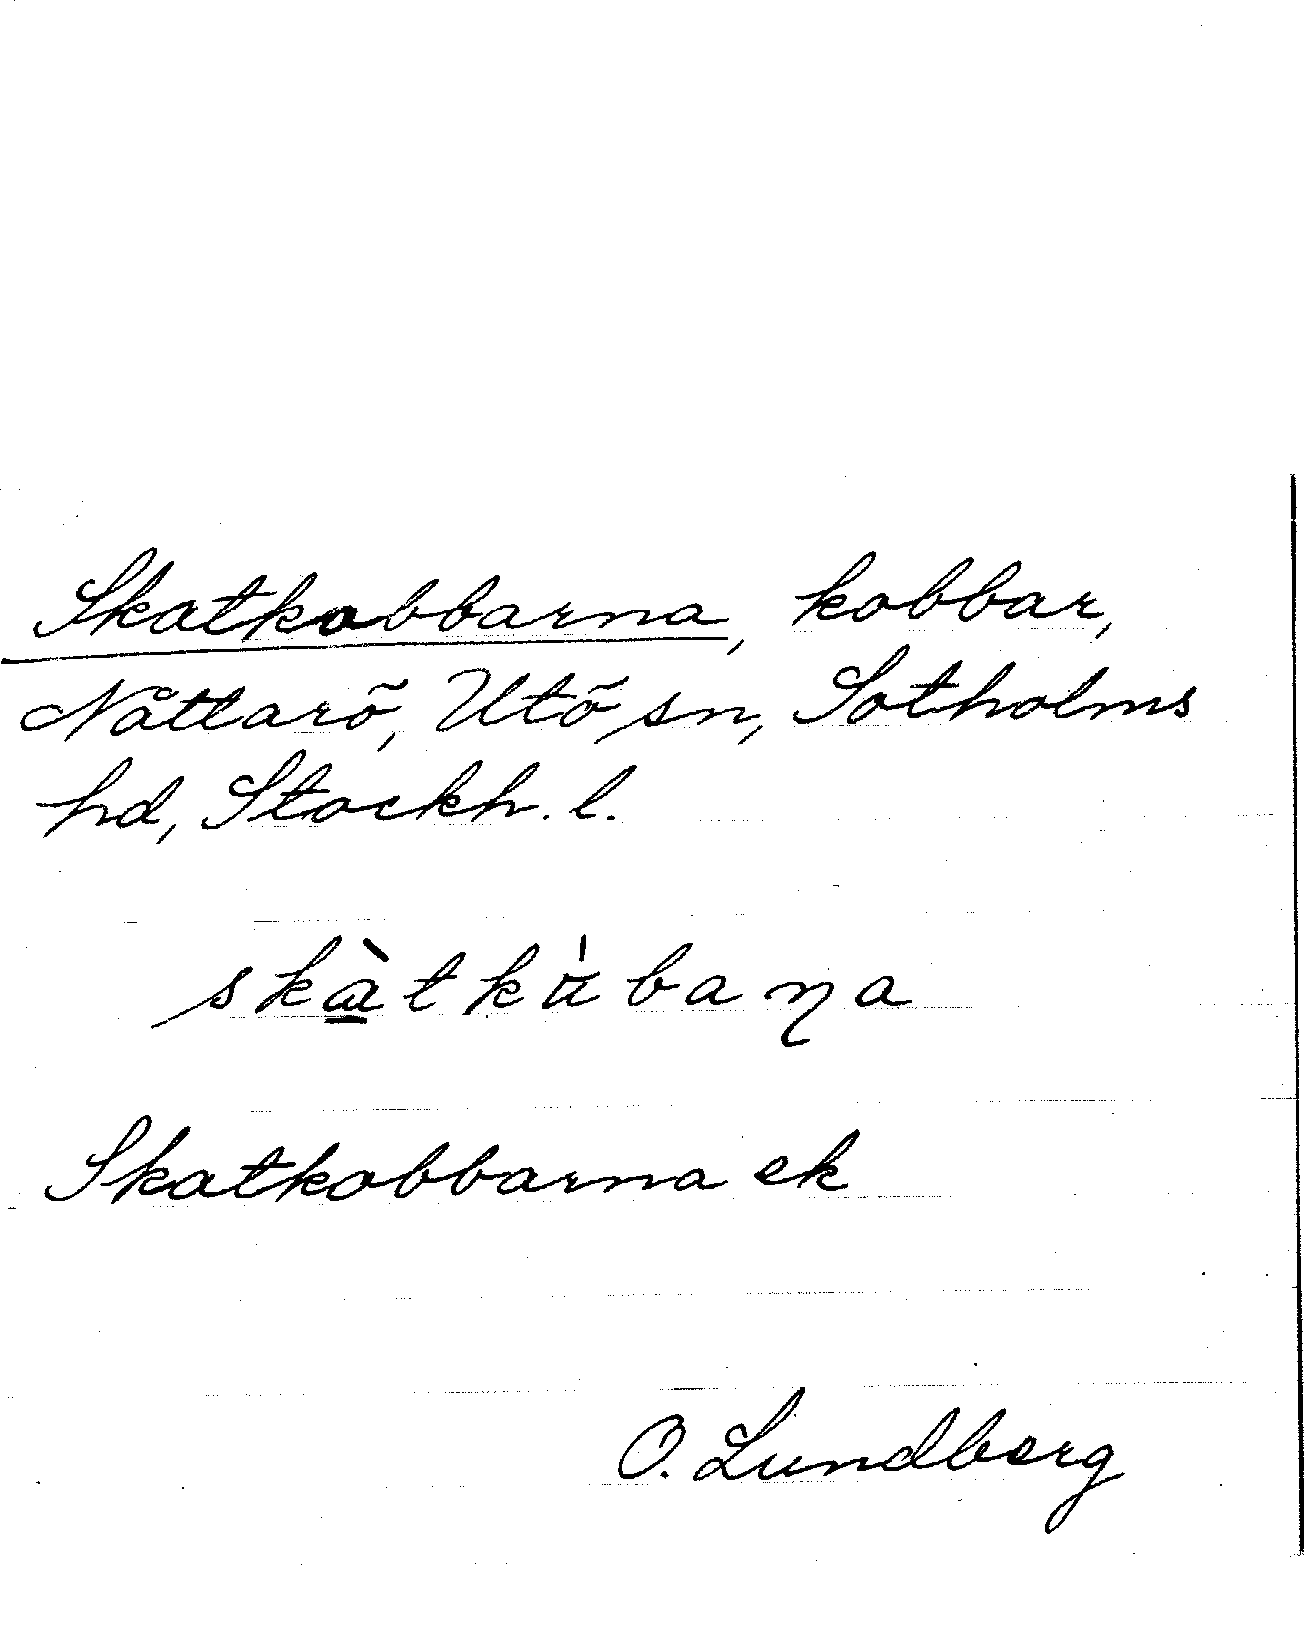 Skatkobbarna, kobbar,
Nåttarö, Utö sn, Sotholms
hd, Stockh. l.
Skatkobbarna ek
O. Lundberg